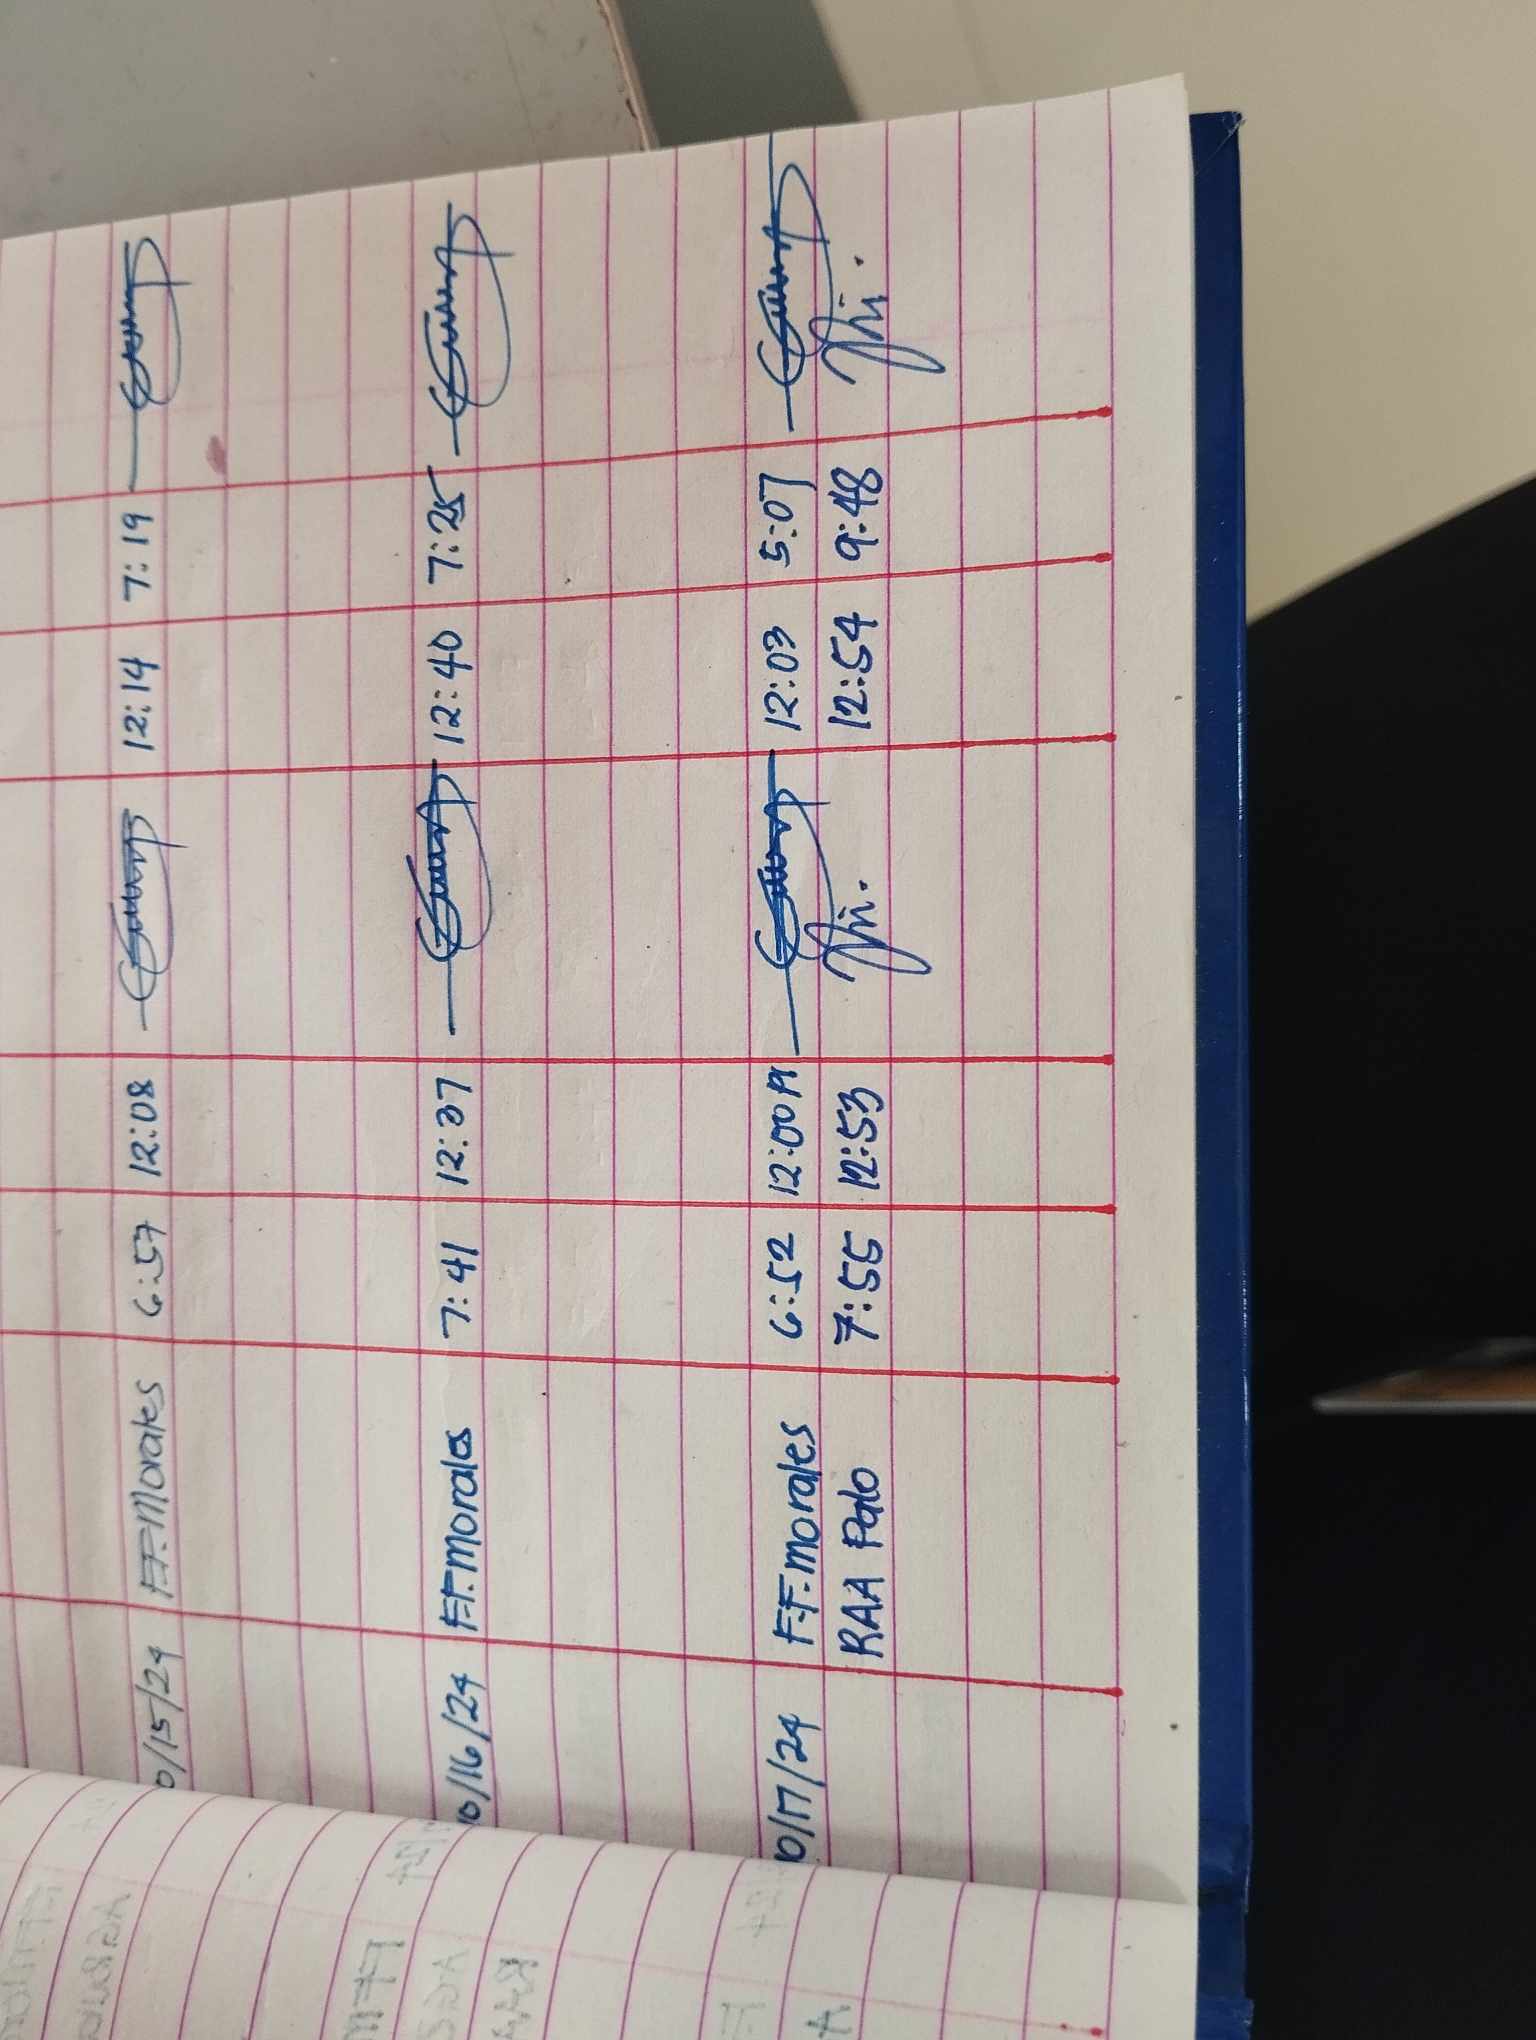 0/15/24 F.F. Morales 6:57 12:08 12:14 7:19
10/16/24 F.F. Morales 7:41 12:37 12:40 7:25
0/17/24 F.F. Morales 6:52 12:00 12:03 5:07
RAA Palo 7:55 12:53 12:54 9:48